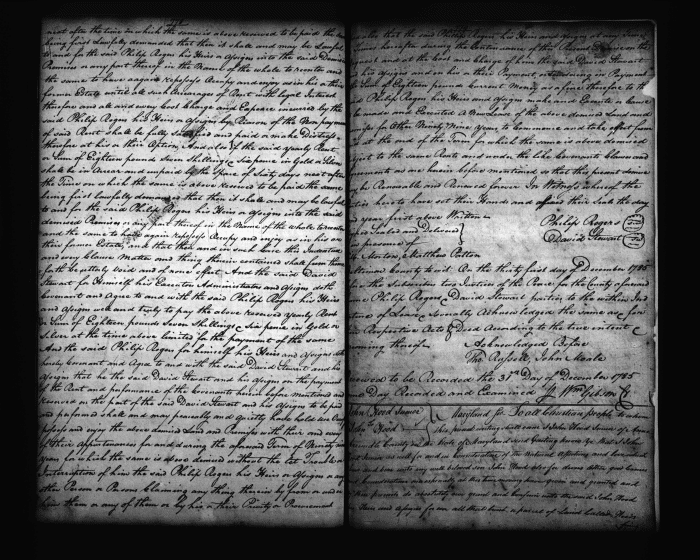 next after the time in which the same is above reserved to be paid the same
being first Lawfully demanded that then it shall and may be Lawful
to and for the said Philip Rogers his Heirs or Assigns into the said Demised
Premises or any part thereof in the Name of the whole to reenter and
the same to have again repossess Occupy and enjoy as in his or their
former Estate untill all such Arrearages of Rent with legal Interest
therefore and all and every Cost Charge and Expence incurred by the
said Philip Rogers his Heirs or Assigns by Reason of the Non payment
of said Rent shall be fully satisfied and paid or make Distress
therefor at his or their Option. And also if the said Yearly Rent
or Sum of Eighteen pounds Seven Shillings & Six pence in Gold or Silver
shall be in Arrear and unpaid by the Space of Sixty days next after
the Time on which the same is above Reserved to be paid the same
being first Lawfully demanded that then it shall and may be Lawful
to and for the said Philip Rogers his Heirs or Assigns into the said
demised Premises or any part thereof in the Name of the whole to reenter
and the same to have again repossess Occupy and enjoy as in his or
their former Estate, and that then and from thence this Indenture
and every Clause Matter and thing therein contained shall from thence
forth be utterly void and of none effect. And the said David
Stewart for himself his Executors Administrators and Assigns doth
Covenant and Agree to and with the said Philip Rogers his Heirs
and Assigns well and truly to pay the above reserved yearly Rent
or Sum of Eighteen pounds Seven Shillings & Six pence in Gold or
Silver at the time above limited for the payment of the same
And the said Philip Rogers for himself his Heirs and Assigns doth
hereby Covenant and Agree to and with the said David Stewart and his
Assigns that he the said David Stewart and his Assigns on the payment
of the Rent and performance of the Covenants herein before Mentioned and
reserved on the part of the said David Stewart and his Assigns to be paid
and performed shall and may peaceably and quietly have hold use Occupy
possess and enjoy the above demised Land and Premises with their and every
of their Appurtenances for and during the aforesaid Term of Ninety nine
years for which the same is above demised without the Let Trouble or
Interruption of him the said Philip Rogers his Heirs or Assigns or any
other Person or Persons Claiming any thing therein by from or under
him them or any of them or by his or their Privity or Procurement
that the said Philip Rogers his Heirs and Assigns at any
times hereafter during the Continuance of this Present Demise on the
request and at the Cost and Charge of him the said David Stewart
his Assigns and on his or their Payment or tendering in Payment
Sum of Eighteen pounds Current Money as a fine therefor to the
said Philip Rogers his Heirs and Assigns make and Execute or Cause
be made and Executed a New Lease of the above demised Land and
for other Ninety Nine Years to Commence and take effect from
at the end of the Term for which the same is above demised
Subject to the same Rents and under the like Covenants Clauses and
Agreements as are herein before mentioned so that this present demise
be Renewable and Renewed forever In Witness whereof the
have hereunto set their Hands and affixed their Seals the day
year first above Written
Sealed and Delivered
in presence of
Philip Rogers
David Stewart
Morton, Matthew Patton
Baltimore County to wit. On the thirty first day of December 1785
the Subscribers two Justices of the Peace for the County aforesaid
Philip Rogers & David Stewart parties to the within
of Lease & severally Acknowledged the same as for
Respective Acts & Deed According to the true intent &
meaning thereof. Acknowledged Before
Tho. Russell, John Moale
Received to be Recorded the 31st Day of December 1785
Day Recorded and Examined Wm Gibson Clk
John Hood Junior
John Hood
Maryland Sc. To all Christian people to whom
this present writing shall come I John Hood Senior of
County in the State of Maryland send greeting
as well for and in Consideration of the Natural Affection and love which
bear unto my well beloved son John Hood also for divers other good causes
and Considerations me hereunto moving have given and granted and
by these presents do absolutely give grant and confirm unto the said John Hood
Heirs and Assigns for ever all that tract or parcel of Land Called